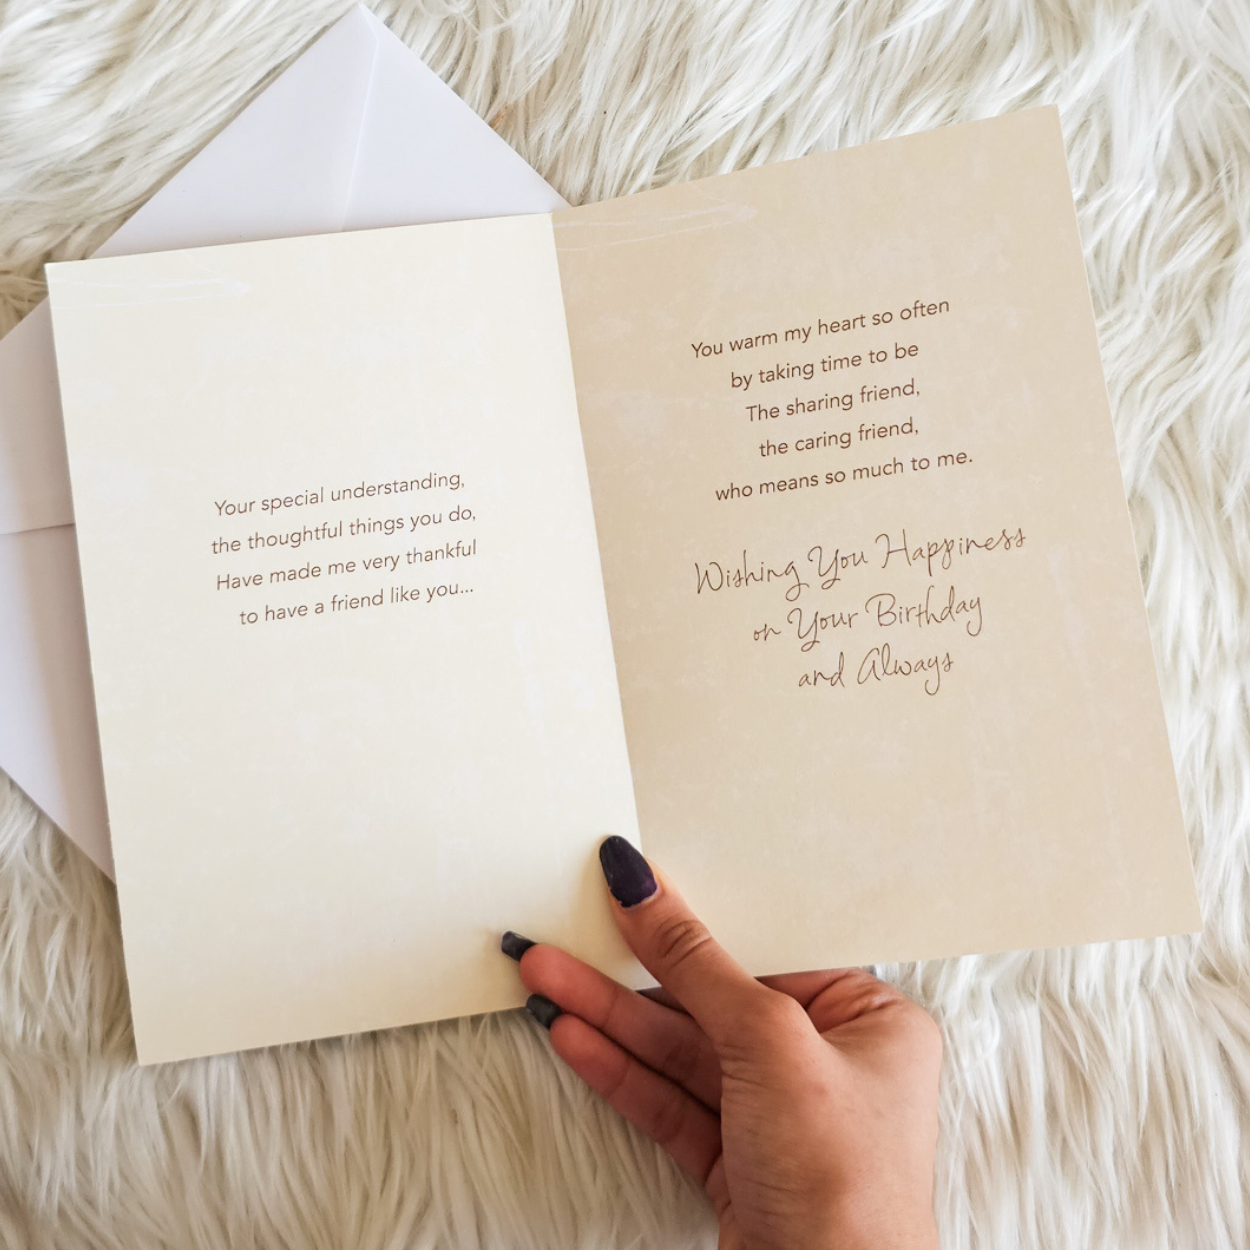 Your special understanding,
the thoughtful things you do,
Have made me very thankful
to have a friend like you...
You warm my heart so often
by taking time to be
The sharing friend,
the caring friend,
who means so much to me.
Wishing You Happiness
on Your Birthday
and Always